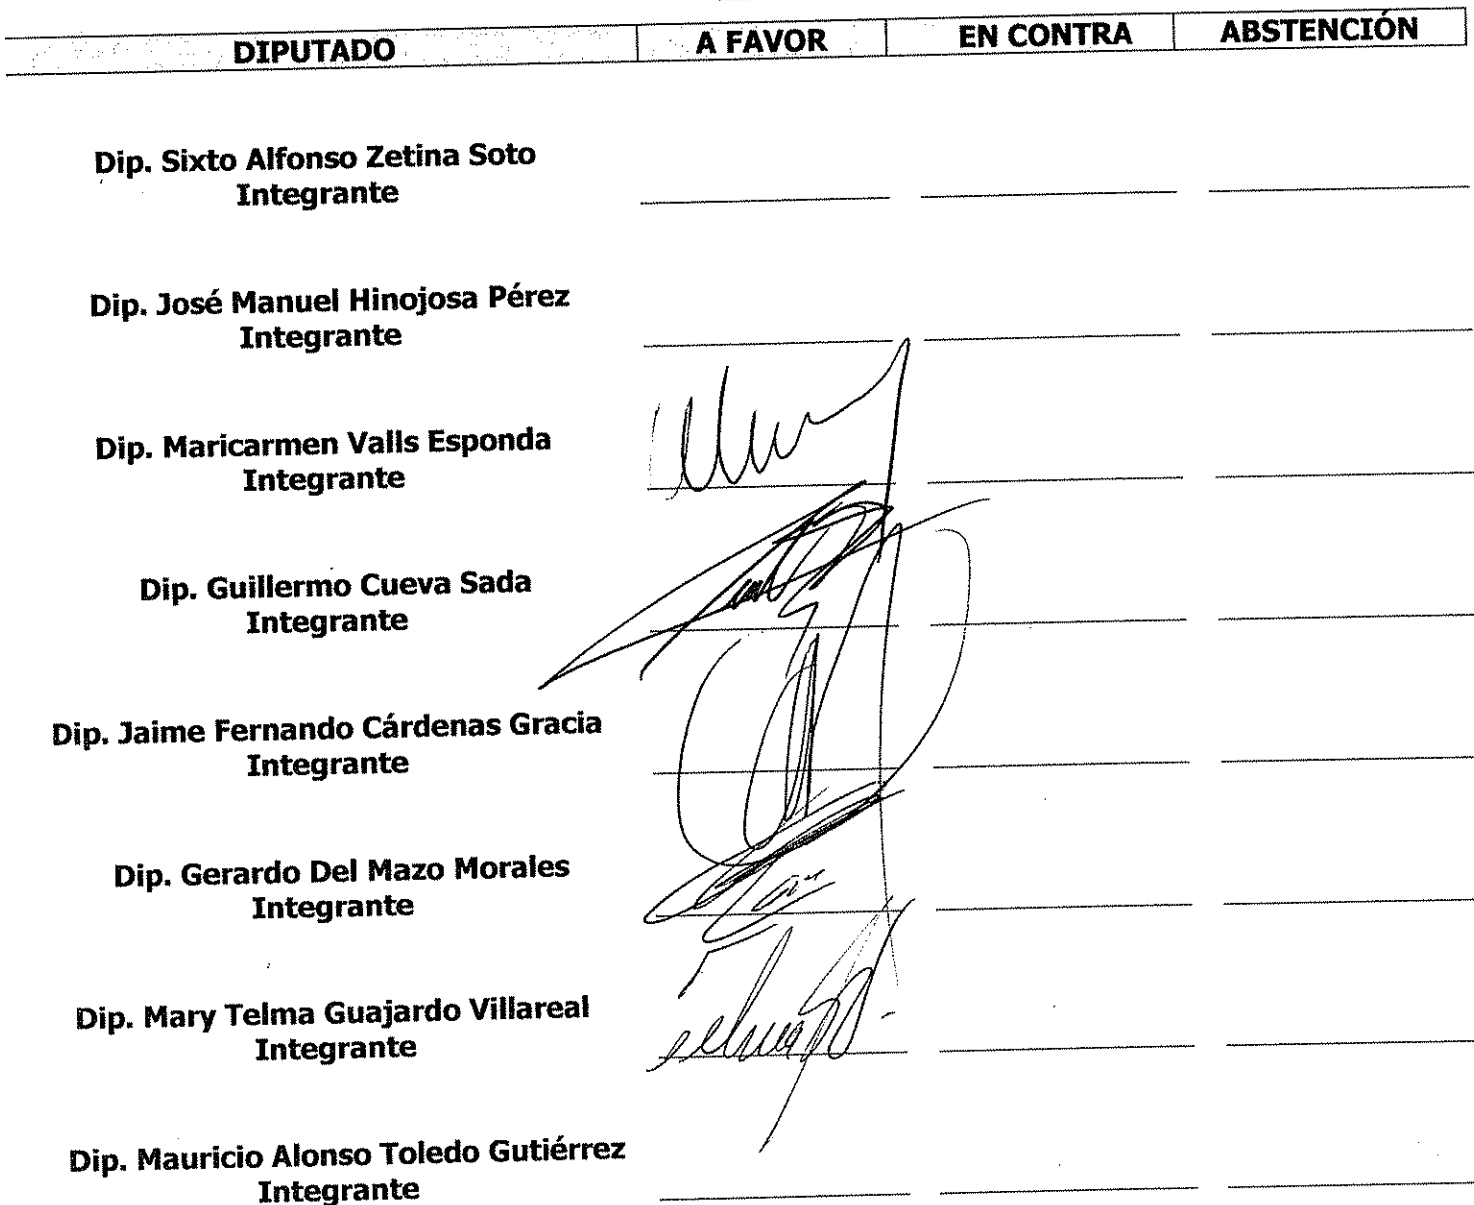 DIPUTADO A FAVOR EN CONTRA ABSTENCIÓN
Dip. Sixto Alfonso Zetina Soto
Integrante
Dip. José Manuel Hinojosa Pérez
Integrante
Dip. Maricarmen Valls Esponda
Integrante
Dip. Guillermo Cueva Sada
Integrante
Dip. Jaime Fernando Cárdenas Gracia
Integrante
Dip. Gerardo Del Mazo Morales
Integrante
Dip. Mary Telma Guajardo Villareal
Integrante
Dip. Mauricio Alonso Toledo Gutiérrez
Integrante